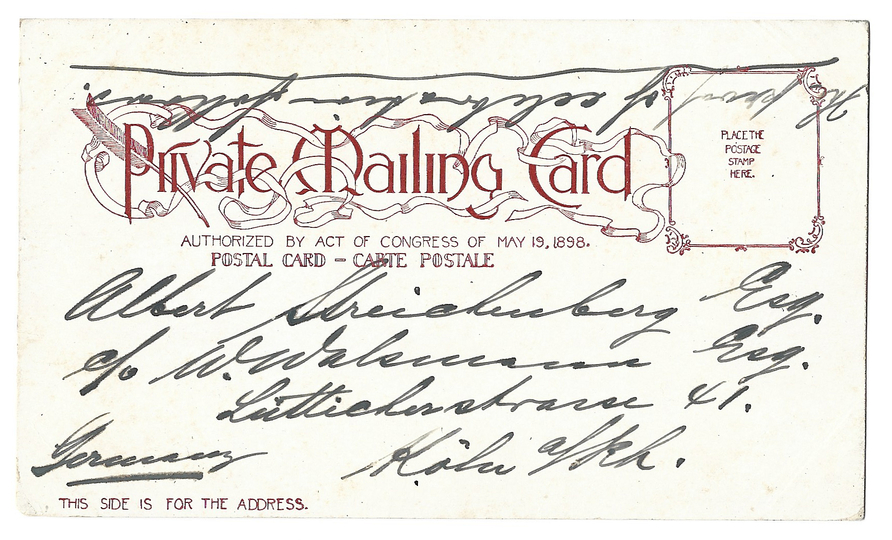 of celebration
Private Mailing Card
PLACE THE
POSTAGE
STAMP
HERE.
AUTHORIZED BY ACT OF CONGRESS OF MAY 19, 1898.
POSTAL CARD – CARTE POSTALE
Albert Streichenberg Esq.
c/o W. Walsmann Esq.
Lütticherstrasse 41.
Germany Köln a/Rh.
THIS SIDE IS FOR THE ADDRESS.